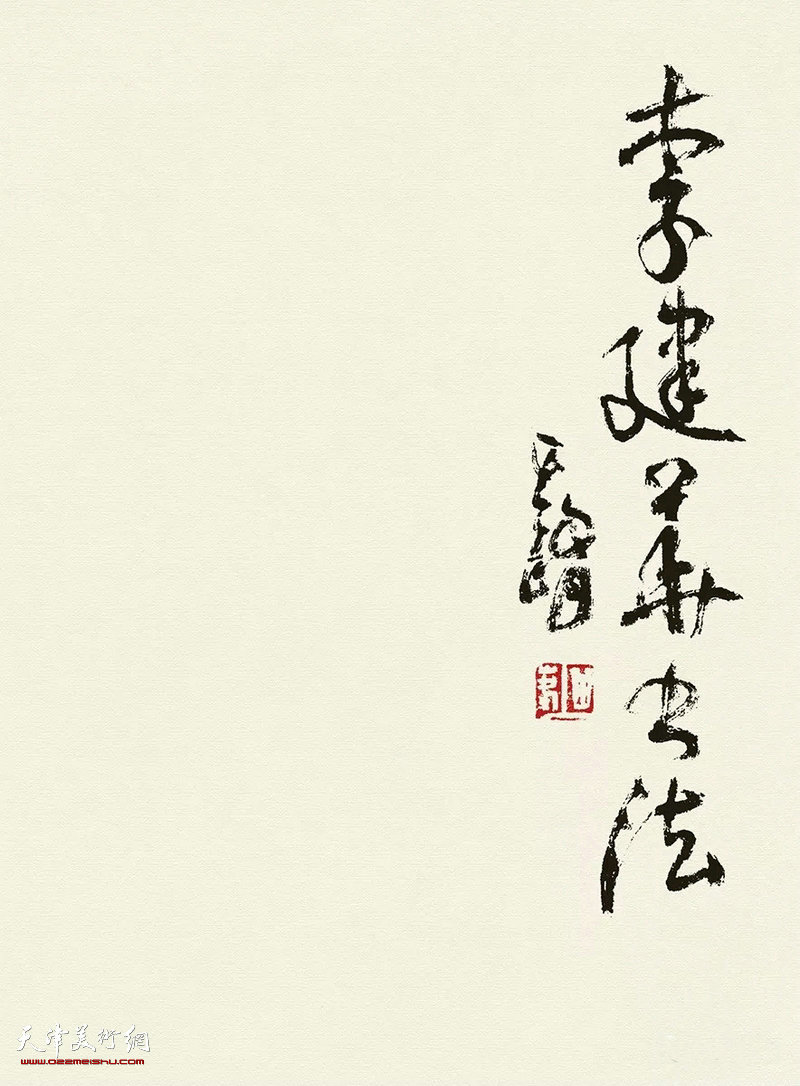 李建華书法
天津美術網
www.022meishu.com